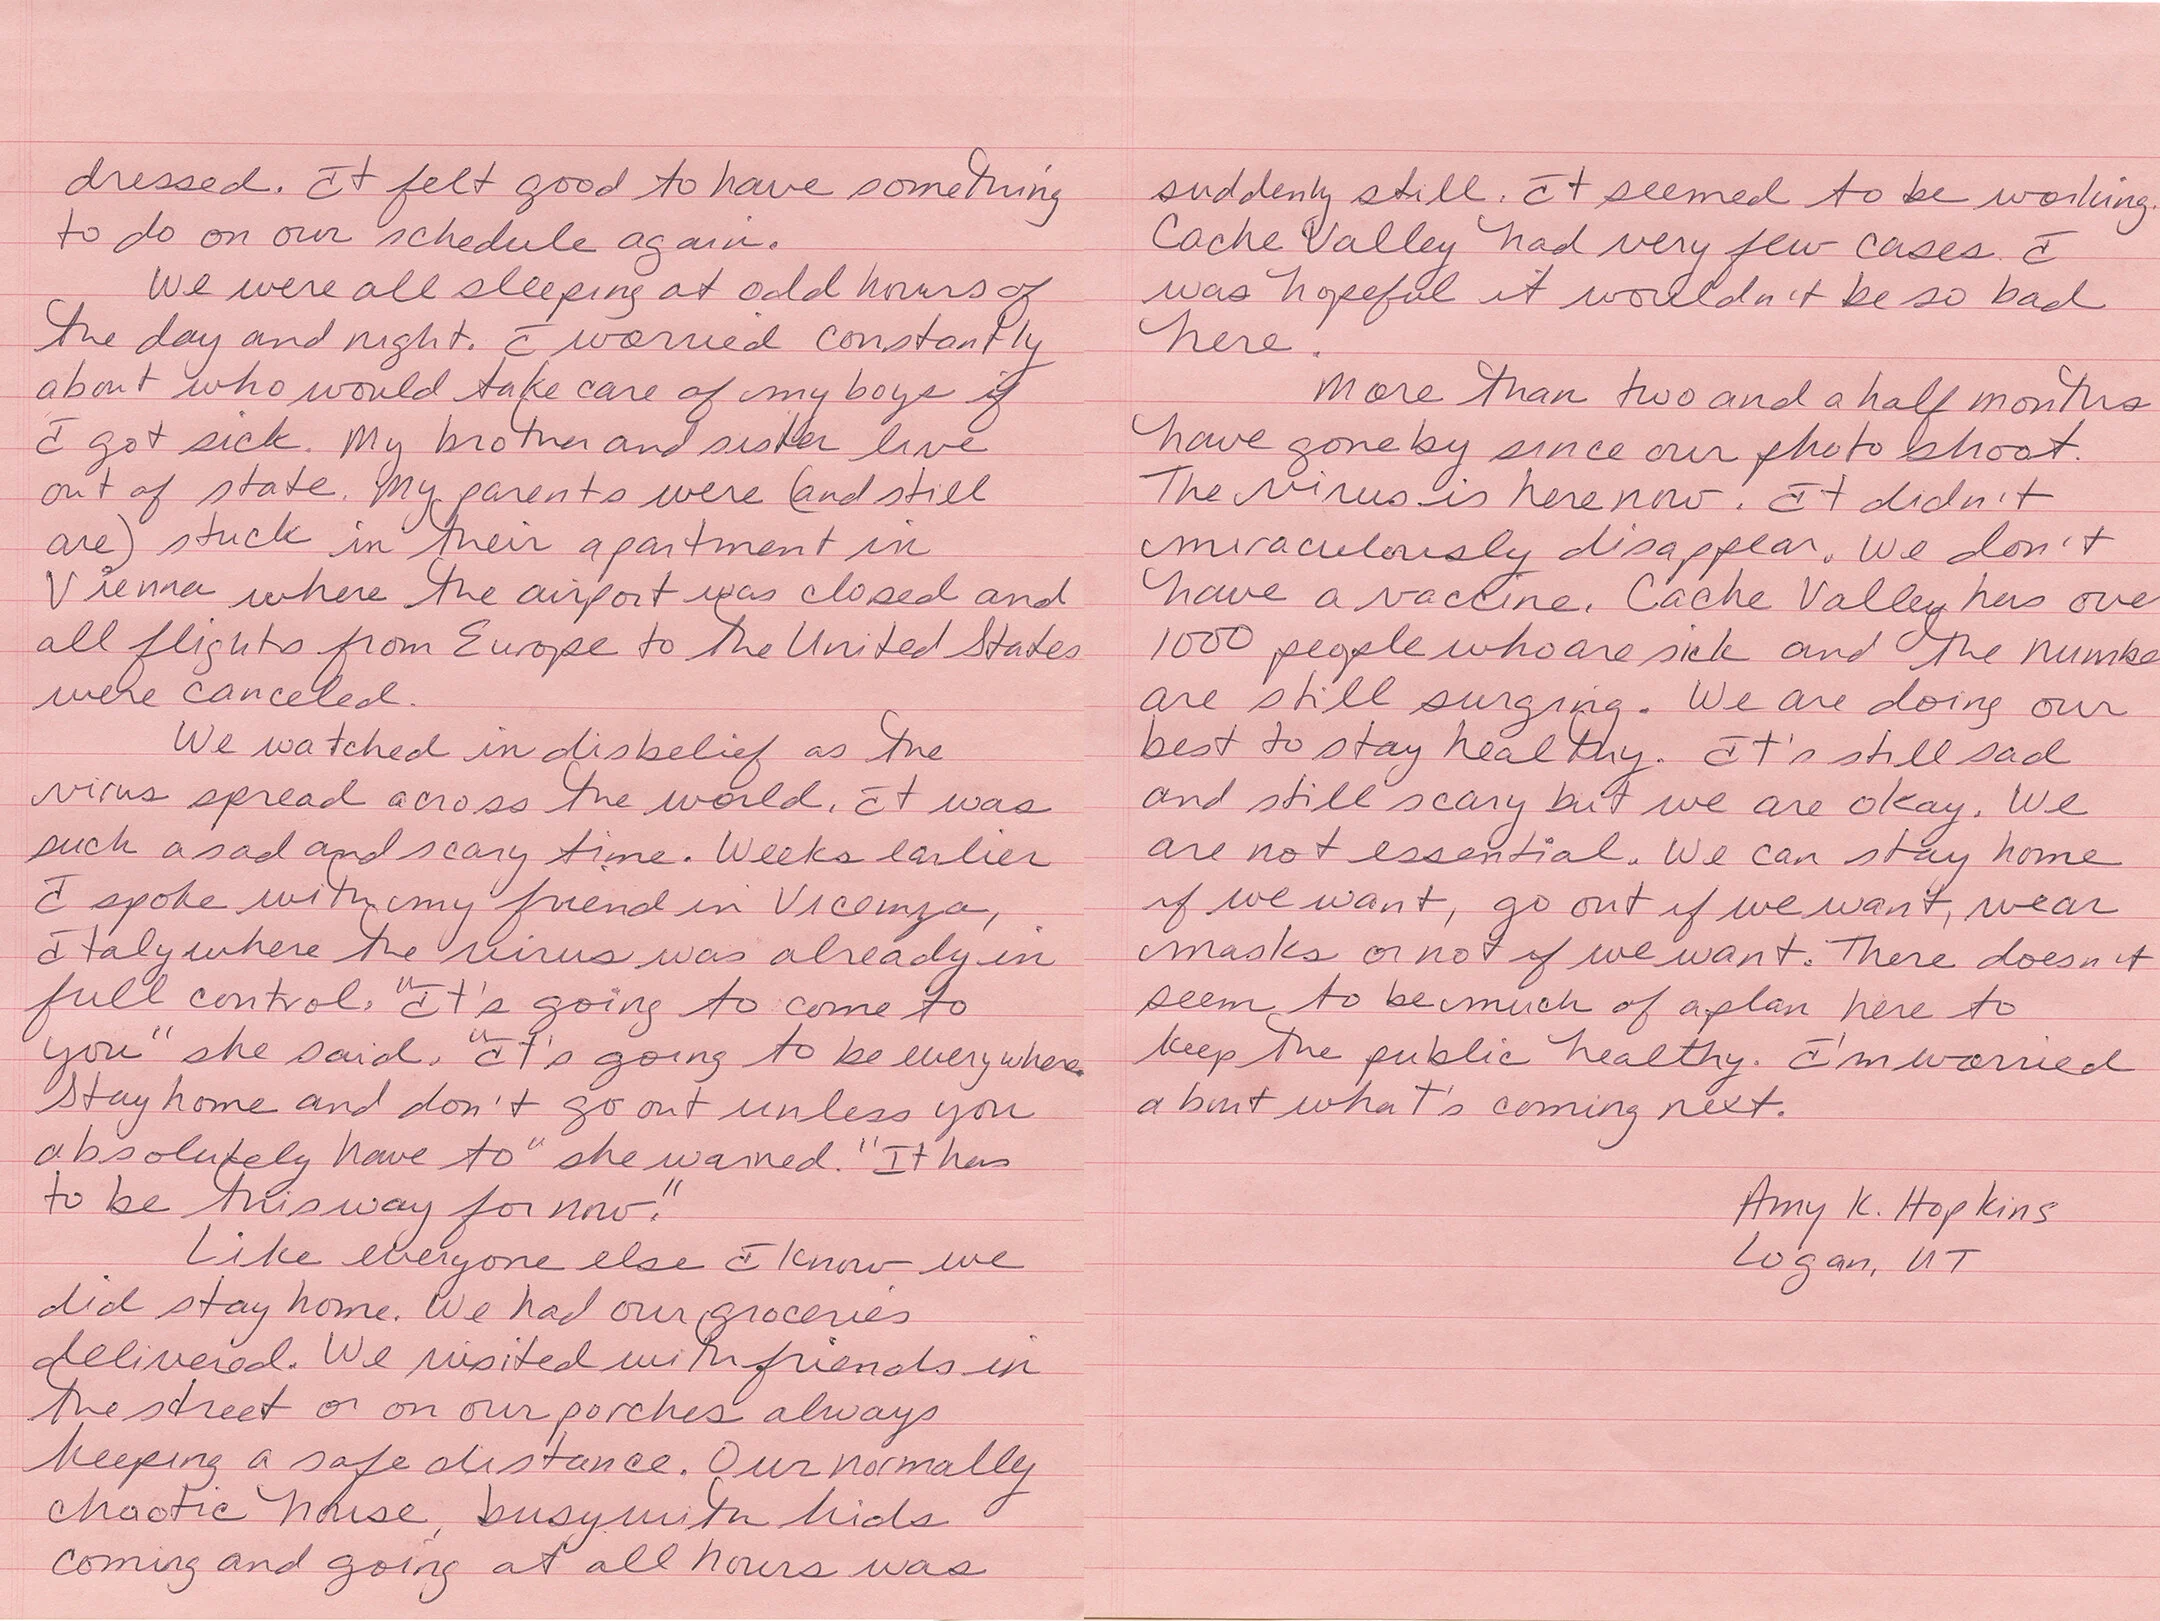 dressed. It felt good to have something
to do on our schedule again.
We were all sleeping at odd hours of
the day and night. I worried constantly
about who would take care of my boys if
I got sick. My brother and sister live
out of state. My parents were (and still
are) stuck in their apartment in
Vienna where the airport was closed and
all flights from Europe to the United States
were canceled.
We watched in disbelief as the
virus spread across the world. It was
such a sad and scary time. Weeks earlier
I spoke with my friend in Vicenza,
Italy where the virus was already in
full control. "It's going to come to
you" she said. "It's going to be everywhere.
Stay home and don't go out unless you
absolutely have to" she warned. "It has
to be this way for now."
Like everyone else I know we
did stay home. We had our groceries
delivered. We visited with friends in
the street or on our porches always
keeping a safe distance. Our normally
chaotic house, busy with kids
coming and going at all hours was
suddenly still. It seemed to be working.
Cache Valley had very few cases. I
was hopeful it wouldn't be so bad
here.
More than two and a half months
have gone by since our photo shoot.
The virus is here now. It didn't
miraculously disappear. We don't
have a vaccine. Cache Valley has ove
1000 people who are sick and the numbe
are still surging. We are doing our
best to stay healthy. It's still sad
and still scary but we are okay. We
are not essential. We can stay home
if we want, go out if we want, wear
masks or not if we want. There doesn't
seem to be much of a plan here to
keep the public healthy. I'm worried
about what's coming next.
Amy K. Hopkins
Logan, UT